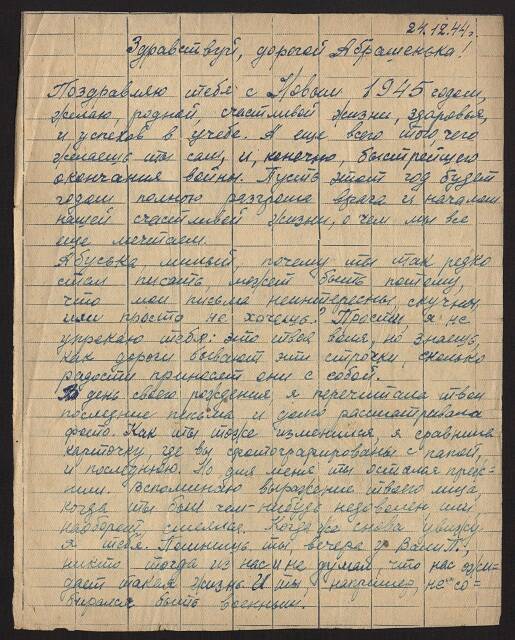 24.12.44г.
Здравствуй, дорогой Абрашенька!
Поздравляю тебя с Новым 1945 годом,
желаю, родной, счастливой жизни, здоровья,
и успехов в учебе. А еще всего того, чего
желаешь ты сам, и, конечно, быстрейшего
окончания войны. Пусть этот год будет
годом полного разгрома врага и началом
нашей счастливой жизни, о чем мы все
еще мечтаем.
Абуська милый, почему ты так редко
стал писать, может быть потому,
что мои письма неинтересны, скучны,
или просто не хочешь? Прости, я не
упрекаю тебя: это твоя воля, но знаешь,
как дороги бывают эти строчки, сколько
радости приносят они с собой.
В день своего рождения я перечитала твои
последние письма и долго рассматривала
фото. Как ты тоже изменился, я сравнила
карточку, где вы сфотографированы с папой,
и последнюю. Но для меня ты остался преж-
ним. Вспоминаю выражение твоего лица,
когда ты был чем-нибудь недоволен, или
наоборот смеялся. Когда же снова увижу
я тебя. Помнишь ты, вечера у Вали П.,
никто тогда из нас и не думал, что нас ожи-
дает такая жизнь. И ты, например, не со-
бирался быть военным.